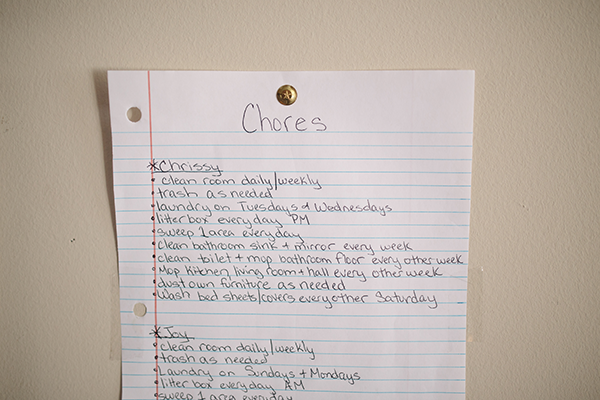 Chores
*Chrissy
• clean room daily/weekly
• trash as needed
• laundry on Tuesdays + Wednesdays
• litter box everyday PM
• sweep 1 area everyday
• clean bathroom sink + mirror every week
• clean toilet + mop bathroom floor every other week
• Mop kitchen, living room + hall every other week
• dust own furniture as needed
• Wash bed sheets/covers every other Saturday
*Joy
• clean room daily/weekly
• trash as needed
• Laundry on Sundays + Mondays
• litter box everyday AM
• sweep 1 area everyday